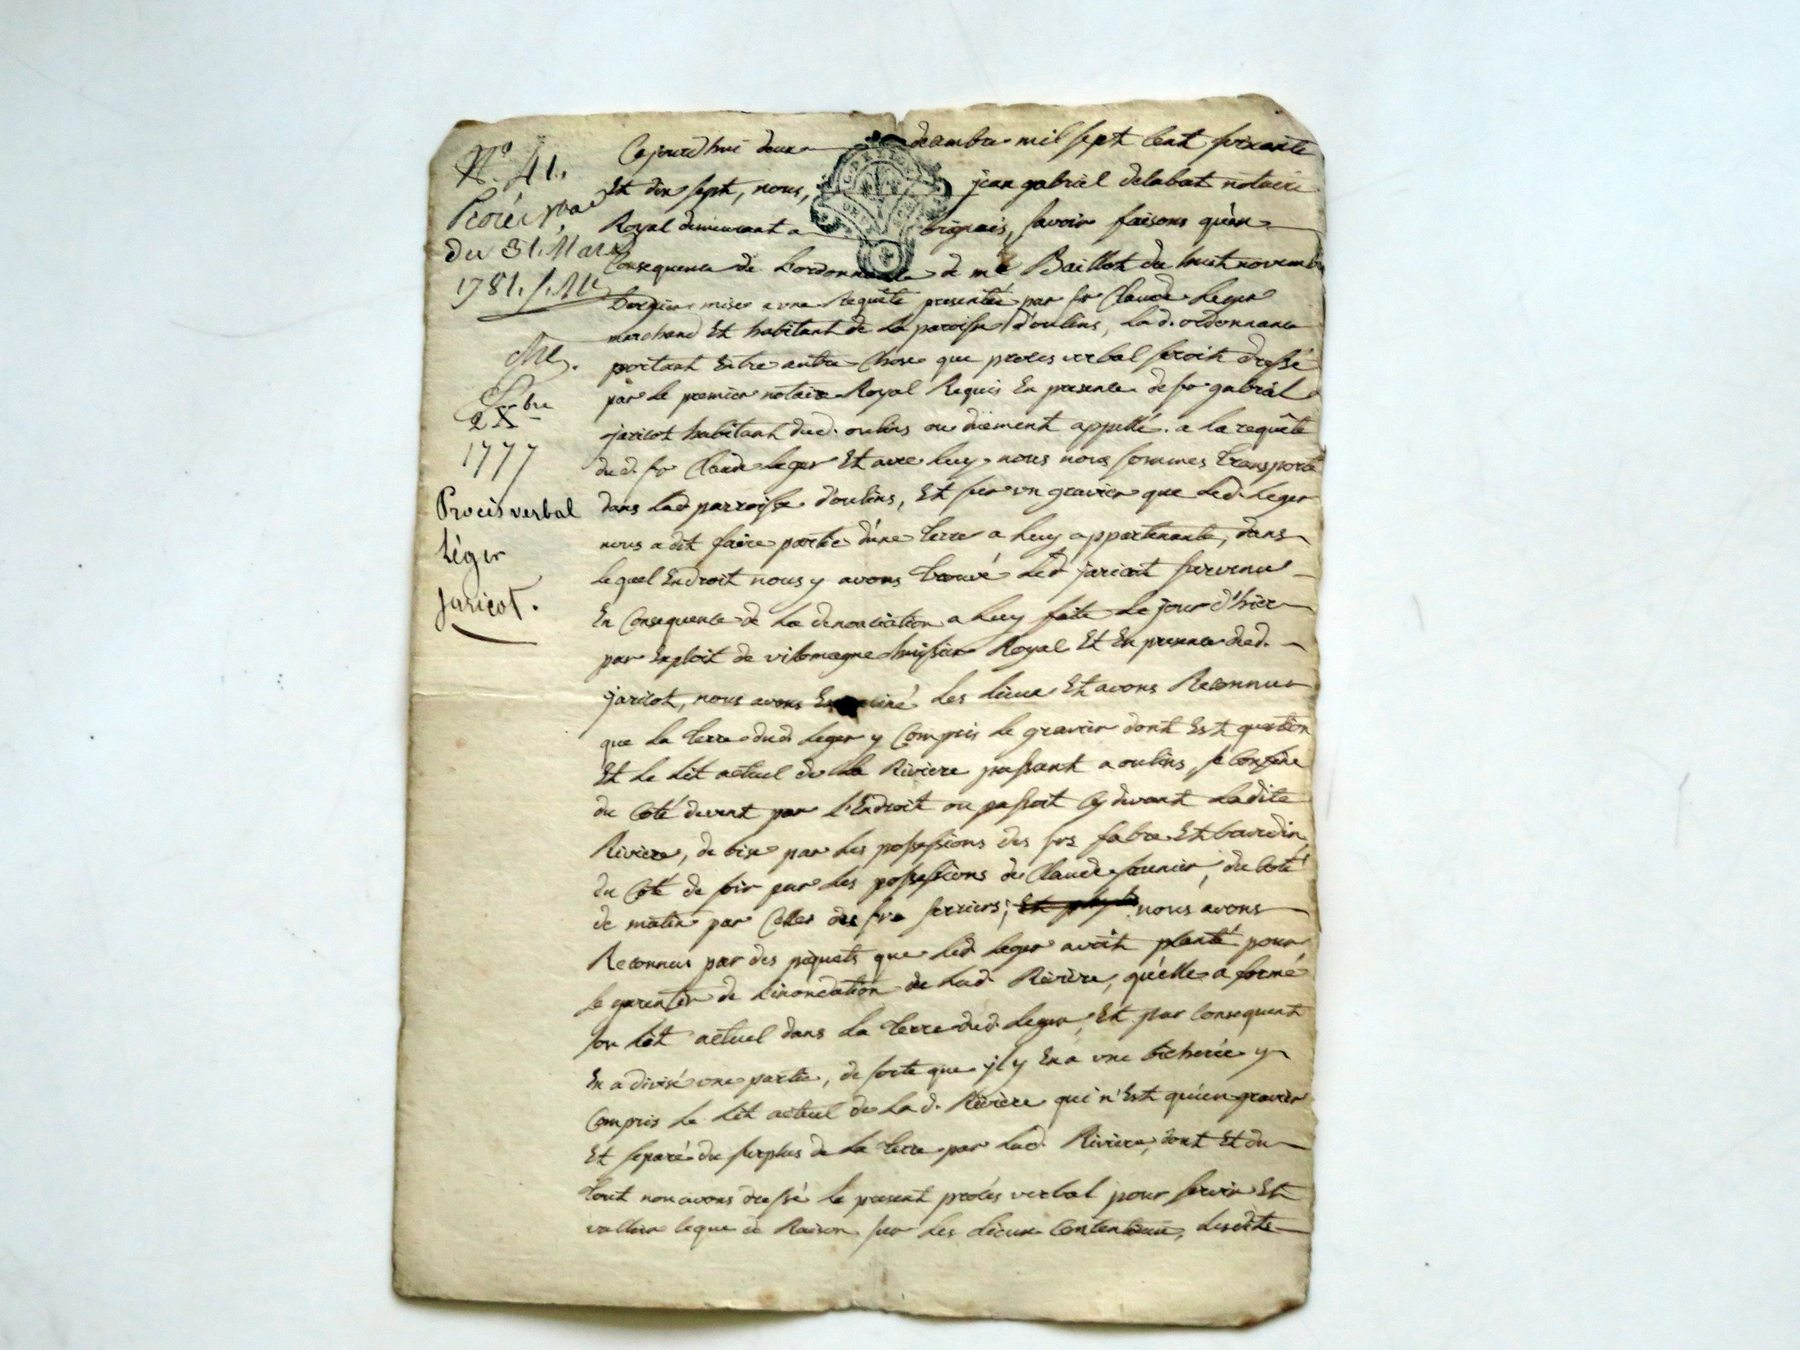 N.º 41.
du 31. Mars
1781.
2 Xbre
1777
Procès verbal
léger
jaricot.
Cejourdhui deux decembre mil sept cent soixante
Et dix sept, nous, jean gabriel delabat notaire
Royal demeurant a brignais, savoir faisons qu'en
Consequence de L'ordonnance de me Baillot du huit novembre
dernier mise a une Requête presentée par sr Claude Leger
marchand Et habitant de La paroisse d'oulins, Lad. ordonnance
portant Entre autre Chose que procès verbal seroit dressé
par Le premier notaire Royal Requis En presence de sr gabriel
jaricot habitant dud. oulins ou düement appellé. a la requête
dud. sr Claude Leger Et avec luy nous nous sommes transporté
dans Lad. parroisse d'oulins, Et sur un gravier que Led. Leger
nous a dit faire partie d'une terre a Luy appartenante, dans
lequel Endroit nous y avons trouvé Led. jaricot survenu
En Consequence de La denonciation a Luy faite Le jour d'hier
par Exploit de vilemagne huissier Royal Et En presence dud.
jaricot, nous avons Examiné Les Lieux Et avons Reconnu
que La terre dud. Leger y Compris Le gravier dont Est question
Et Le Lit actuel de La Riviere passant a oulins, se Confine
du Coté du vent par L'Endroit ou passoit Cy devant Ladite
Riviere, de bise par Les possessions des srs fabre Et bourdin
du Coté de soir par Les possessions de Claude founier, du Coté
de matin par Celles des srs ferriers, nous avons
Reconnus par des piquets que Led. Leger avoit planté pour
se garentir de L'inondation de Lad. Riviere, qu'elle a formé
son Lit actuel dans La terre dud. Leger, Et par Consequent
En a divisé une partie, de sorte que jl y En a une bicherée y
Compris Le Lit actuel de Lad. Riviere qui n'Est qu'un gravier
Et separé du surplus de La terre par Lad. Riviere, dont Et du
tout nous avons dressé le present procès verbal pour servir Et
valloir ce que de Raison sur Les Lieux Contentieux, Lesdits